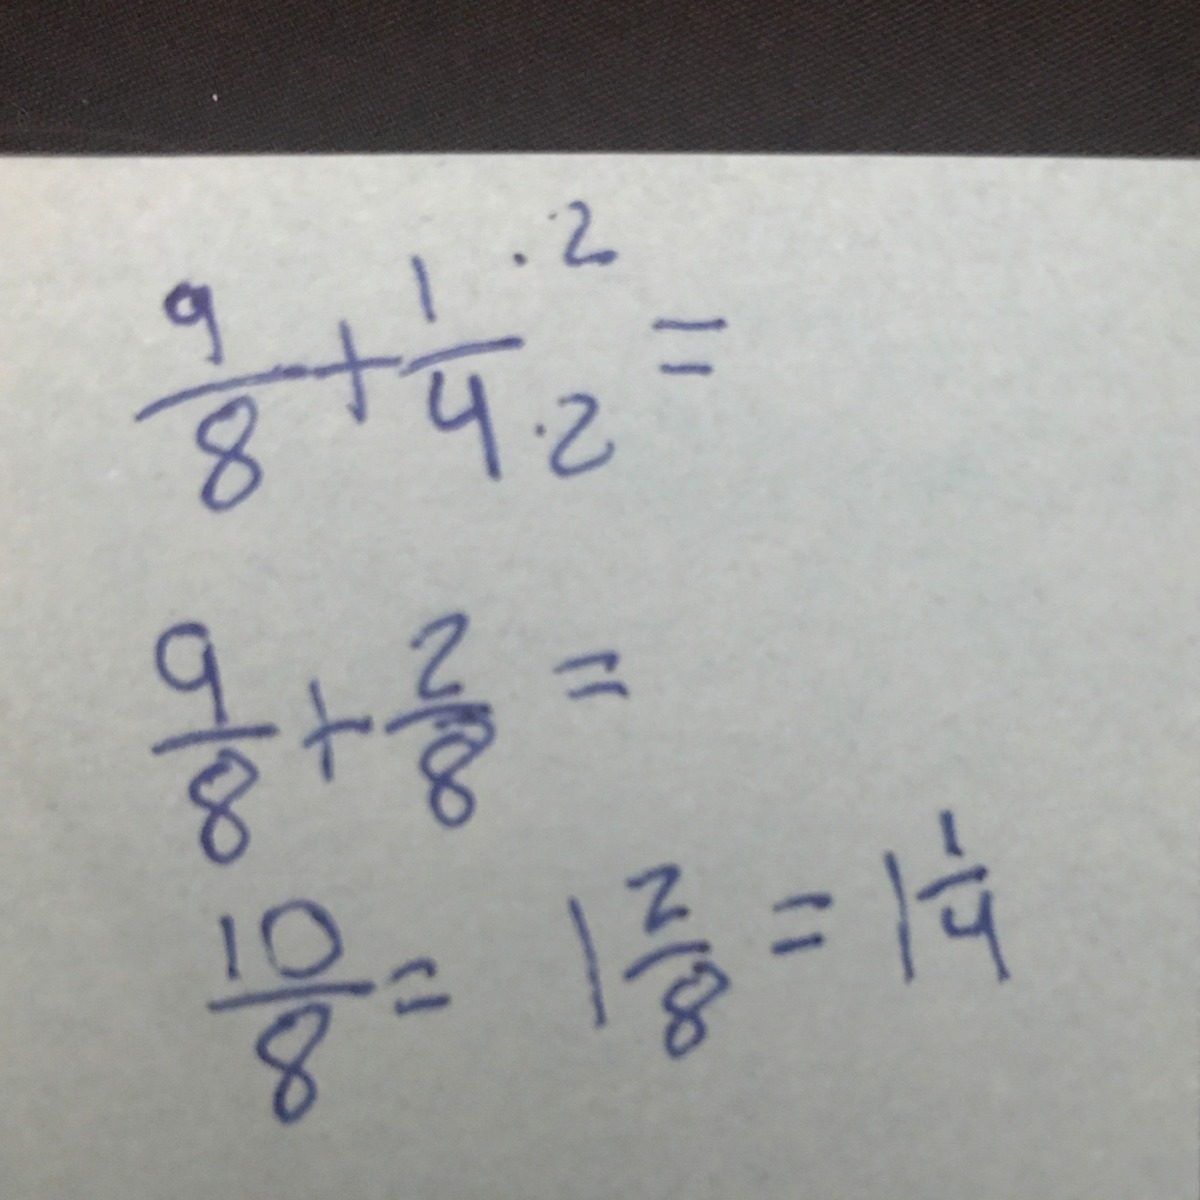 9/8 + 1·2/4·2 =
9/8 + 2/8 =
10/8 = 1 2/8 = 1 1/4